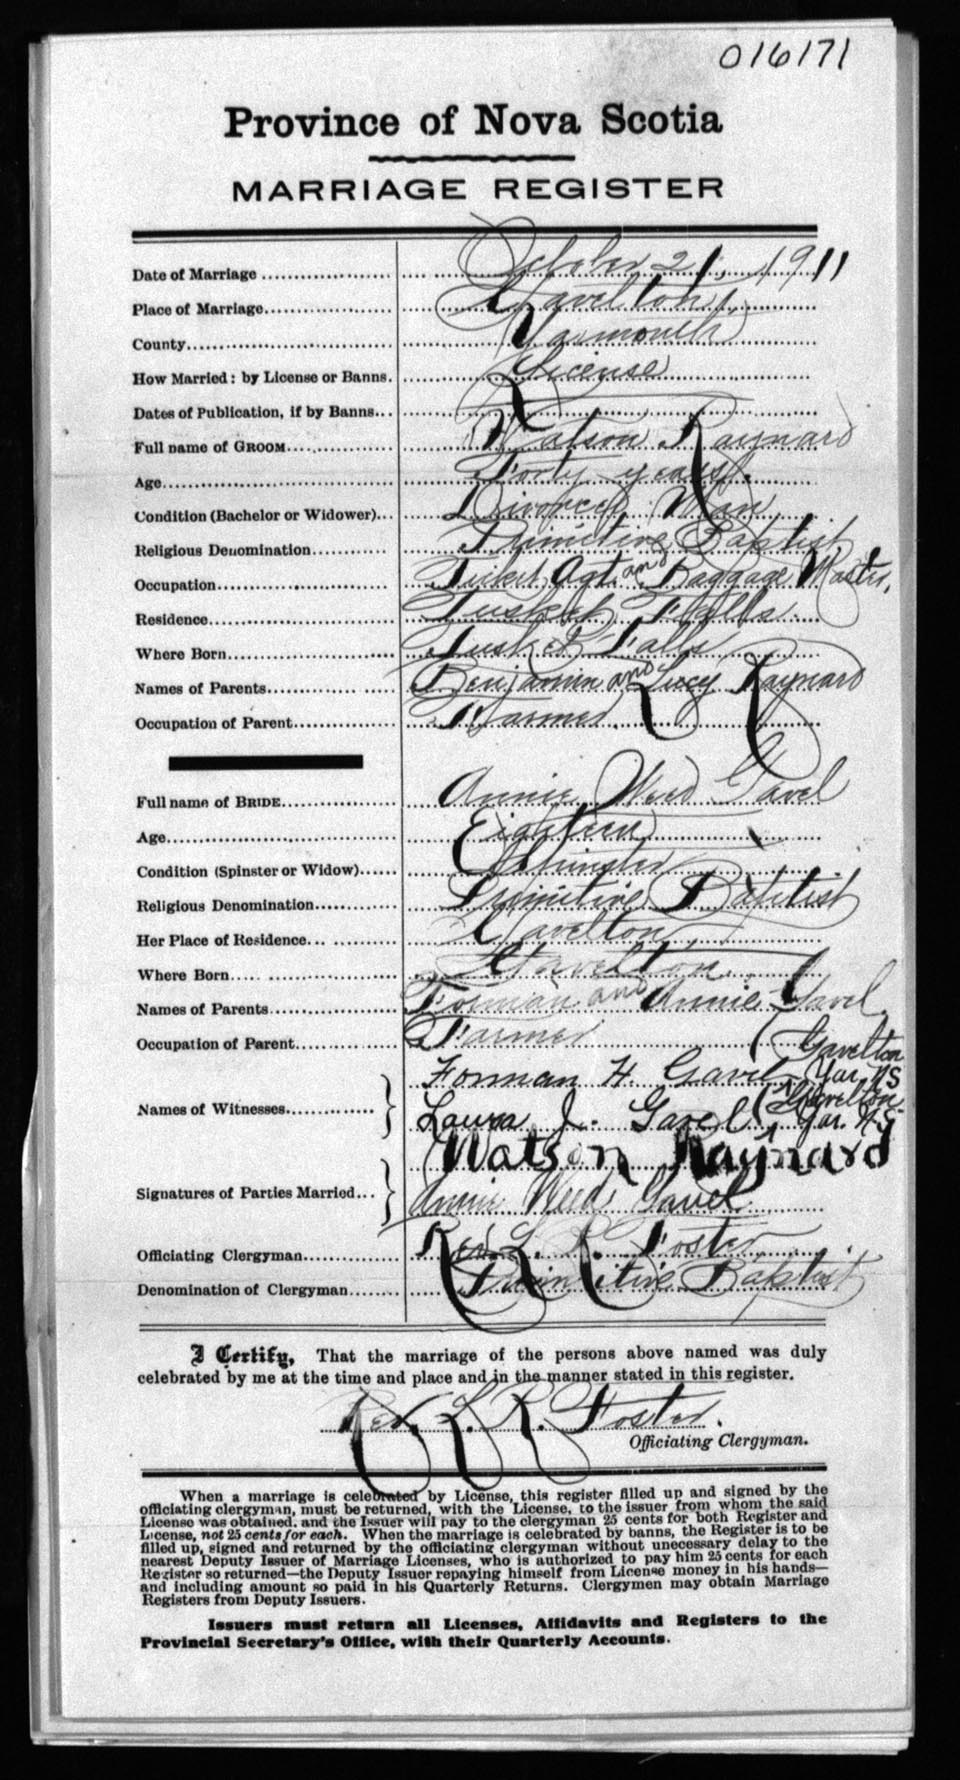 016171
Province of Nova Scotia
MARRIAGE REGISTER
Date of Marriage October 21, 1911
Place of Marriage Gavelton,
County Yarmouth
How Married: by License or Banns. License
Dates of Publication, if by Banns
Full name of GROOM Watson Raynard
Age Forty years.
Condition (Bachelor or Widower) Divorced Man
Religious Denomination Primitive Baptist
Occupation Ticket Agt. and Baggage Master,
Residence Tusket Falls
Where Born Tusket Falls
Names of Parents Benjamin and Lucy Raynard
Occupation of Parent Farmer
Full name of BRIDE Annie Weed Gavel
Age Eighteen
Condition (Spinster or Widow) Spinster
Religious Denomination Primitive Baptist
Her Place of Residence Gavelton,
Where Born Gavelton
Names of Parents Forman and Annie Gavel
Occupation of Parent Farmer
Names of Witnesses Forman H. Gavel (Gavelton Yar. NS
Laura J. Gavel (Gavelton Yar. N.S.
Signatures of Parties Married Watson Raynard
Annie Weed Gavel
Officiating Clergyman Rev. L. R. Foster
Denomination of Clergyman Primitive Baptist
I Certify, That the marriage of the persons above named was duly
celebrated by me at the time and place and in the manner stated in this register.
Rev. L. R. Foster.
Officiating Clergyman.
When a marriage is celebrated by License, this register filled up and signed by the
officiating clergyman, must be returned, with the License, to the issuer from whom the said
License was obtained. and the Issuer will pay to the clergyman 25 cents for both Register and
License, not 25 cents for each. When the marriage is celebrated by banns, the Register is to be
filled up, signed and returned by the officiating clergyman without unecessary delay to the
nearest Deputy Issuer of Marriage Licenses, who is authorized to pay him 25 cents for each
Register so returned—the Deputy Issuer repaying himself from License money in his hands—
and including amount so paid in his Quarterly Returns. Clergymen may obtain Marriage
Registers from Deputy Issuers.
Issuers must return all Licenses, Affidavits and Registers to the
Provincial Secretary's Office, with their Quarterly Accounts.